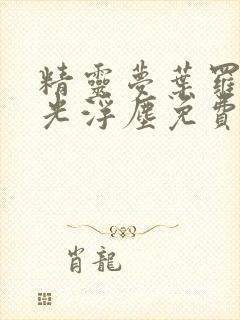 精靈夢葉羅
光浮塵免費
肖龍